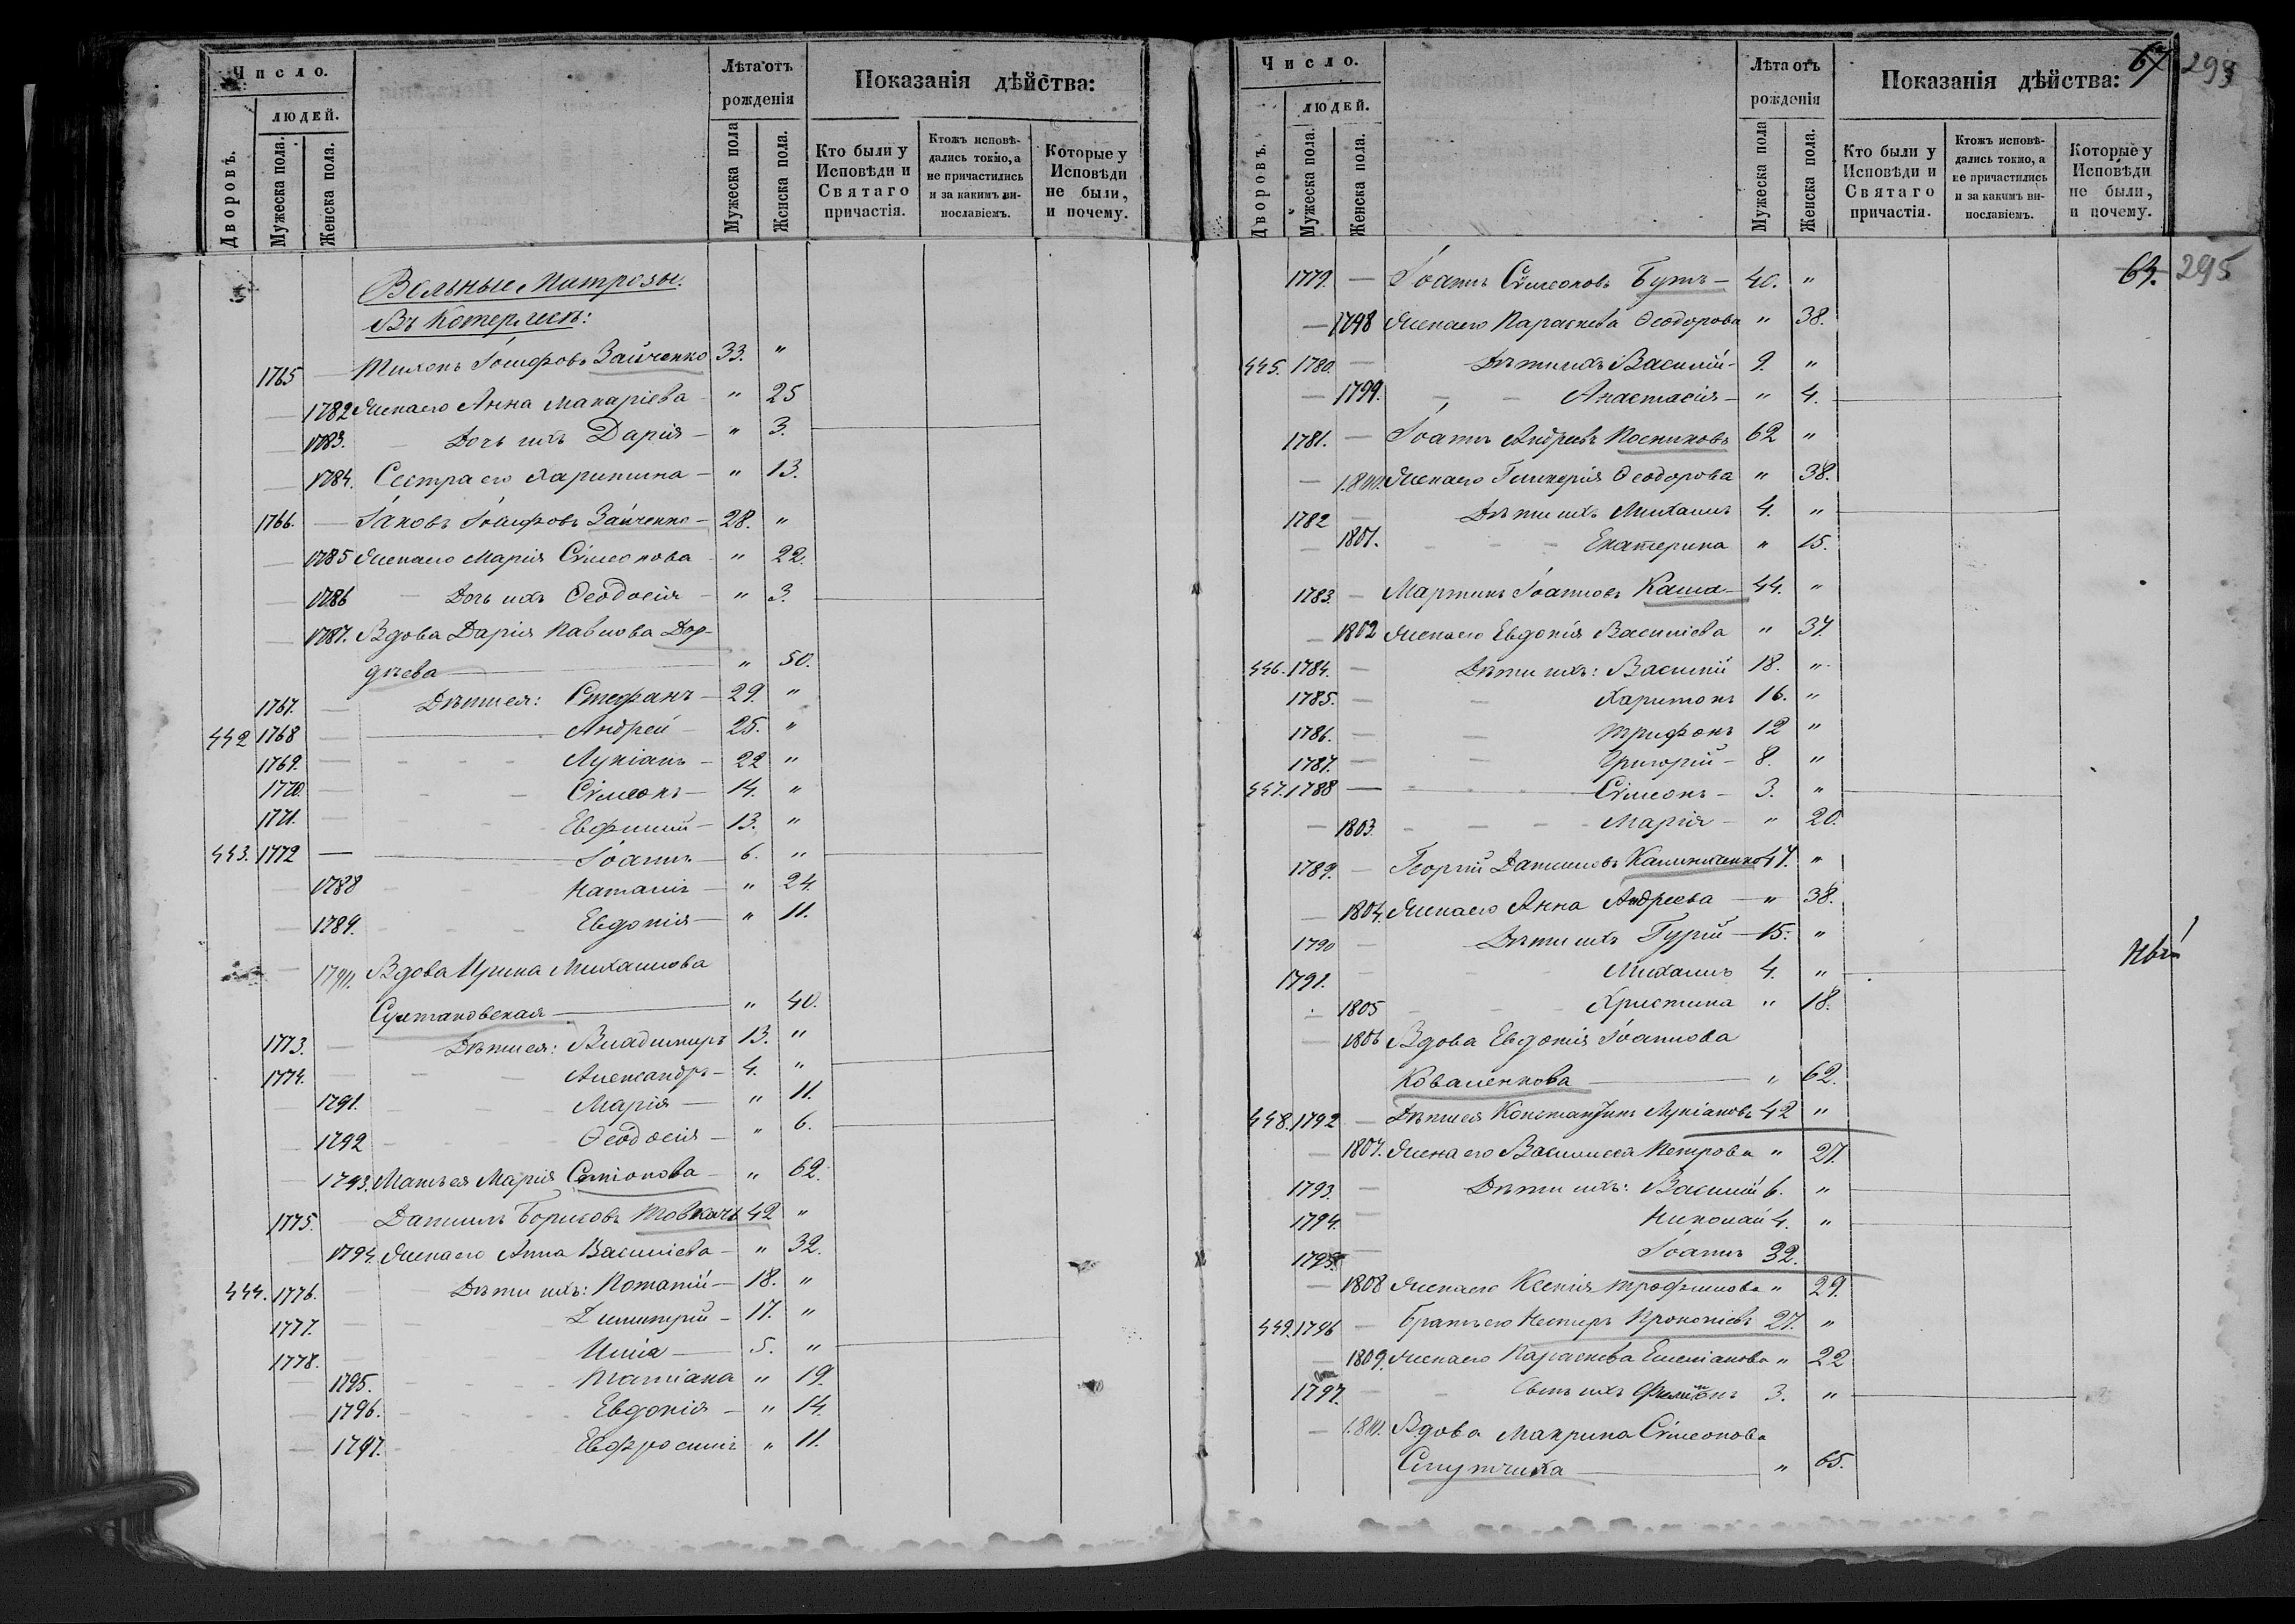 Число.
людей.
Дворовъ.
Мужеска пола.
Женска пола.
Лѣта отъ
рожденія
Мужеска пола
Женска пола.
Показанія дѣйства:
Кто были у
Исповѣди и
Святаго
причастія.
Ктожъ исповѣ-
дались токмо, а
не причастились
и за какимъ ви-
нословіемъ.
Которые у
Исповѣди
не были,
и почему.
Вольные Матрозы.
Въ
1765 — Осифовъ Зайченко 33. "
— 1782 Жена его Анна Макаріева " 25
— 1783. Дочь ихъ Дарія — " 3.
— 1784. Сестра его Харитина — " 13.
1766. — Іаковъ Іосифовъ Зайченко — 28. "
— 1785 Жена его Марія Сѵмеонова " 22.
— 1786 — Дочь ихъ Ѳеодосія — " 3.
— 1787. Вдова Дарія Павлова Дор-
дѣева — " 50.
1767. — Дѣти ея: Стефанъ — 29. "
442 1768 — Андрей — 25. "
1769. — Лукіанъ — 22 "
1770. — Сѵмеонъ — 14. "
1771. — Евфимий — 13. "
443. 1772 — Іоаннъ — 6. "
— 1788 Наталія — " 24.
— 1789. Евдокія — " 11.
— 1790. Вдова Ирина Михаилова
Султановская — " 40.
1773. — Дѣти ея: Владимиръ 13. "
1774. — Александръ — 4. "
— 1791. Марія — " 11.
— 1792 Ѳеодосія — " 6.
— 1793. Мать ея Марія " 62.
1775. — Даниилъ Борисовъ Товкачъ 42 "
— 1794. Жена его Анна Василіева — " 32.
444. 1776. — Дѣти ихъ: Потапій — 18. "
1777. — Димитрій — 17. "
1778. — Илія — 5. "
— 1795. Татіана " 19.
— 1796. Евдокія — " 14.
— 1797. Евфросинія " 11.
Число.
людей.
Дворовъ.
Мужеска пола.
Женска пола.
Лѣта отъ
рожденія
Мужеска пола
Женска пола.
Показанія дѣйства:
67 293
Кто были у
Исповѣди и
Святаго
причастія.
Ктожъ исповѣ-
дались токмо, а
не причастились
и за какимъ ви-
нословіемъ.
Которые у
Исповѣди
не были,
и почему.
295
1779. — Іоаннъ Сѵмеоновъ Бутъ — 40. "
— 1798 Жена его Параскева Ѳеодорова " 38.
445. 1780. — Дѣти ихъ Василій — 9. "
— 1799. Анастасія — " 4.
1781. — Іоаннъ Андреевъ Посниковъ 62 "
— 1800. Жена его Гликерія Ѳеодорова " 38.
1782 — Дѣти ихъ Михаилъ 4. "
— 1801. Екатерина " 15.
1783. — Мартинъ Іоанновъ Каша — 44. "
— 1802 Жена его Евдокія Василіева " 37.
446. 1784. — Дѣти ихъ: Василій 18. "
1785. — Харитонъ 16. "
1786. — Трифонъ 12 "
1787. — Григорій — 8. "
447. 1788 — Сѵмеонъ — 3. "
— 1803. Марія — " 20.
1789. — Георгій Данииловъ 47. "
— 1804. Жена его Анна Андреева — " 38.
1790 — Дѣти ихъ Гурій — 15. "
1791. Михаилъ 4. "
1805 Христина " 18.
— 1806 Вдова Евдокія Іоаннова
Коваленкова — " 62.
448. 1792 — Дѣти ея Константинъ Лукіановъ 42 "
— 1807. Жена его Василисса Петрова " 27.
1793. — Дѣти ихъ: Василій 6. "
1794. — Николай 4. "
1795. — Іоаннъ 32.
— 1808 Жена его Ксенія Трофимова " 29.
449. 1796 — Братъ его Несторъ Прокопіевъ 27. "
— 1809. Жена его Параскева Емеліанова " 22
1797. — Сынъ ихъ 3. "
— 1810. Вдова Макрина Сѵмеонова
— " 65.